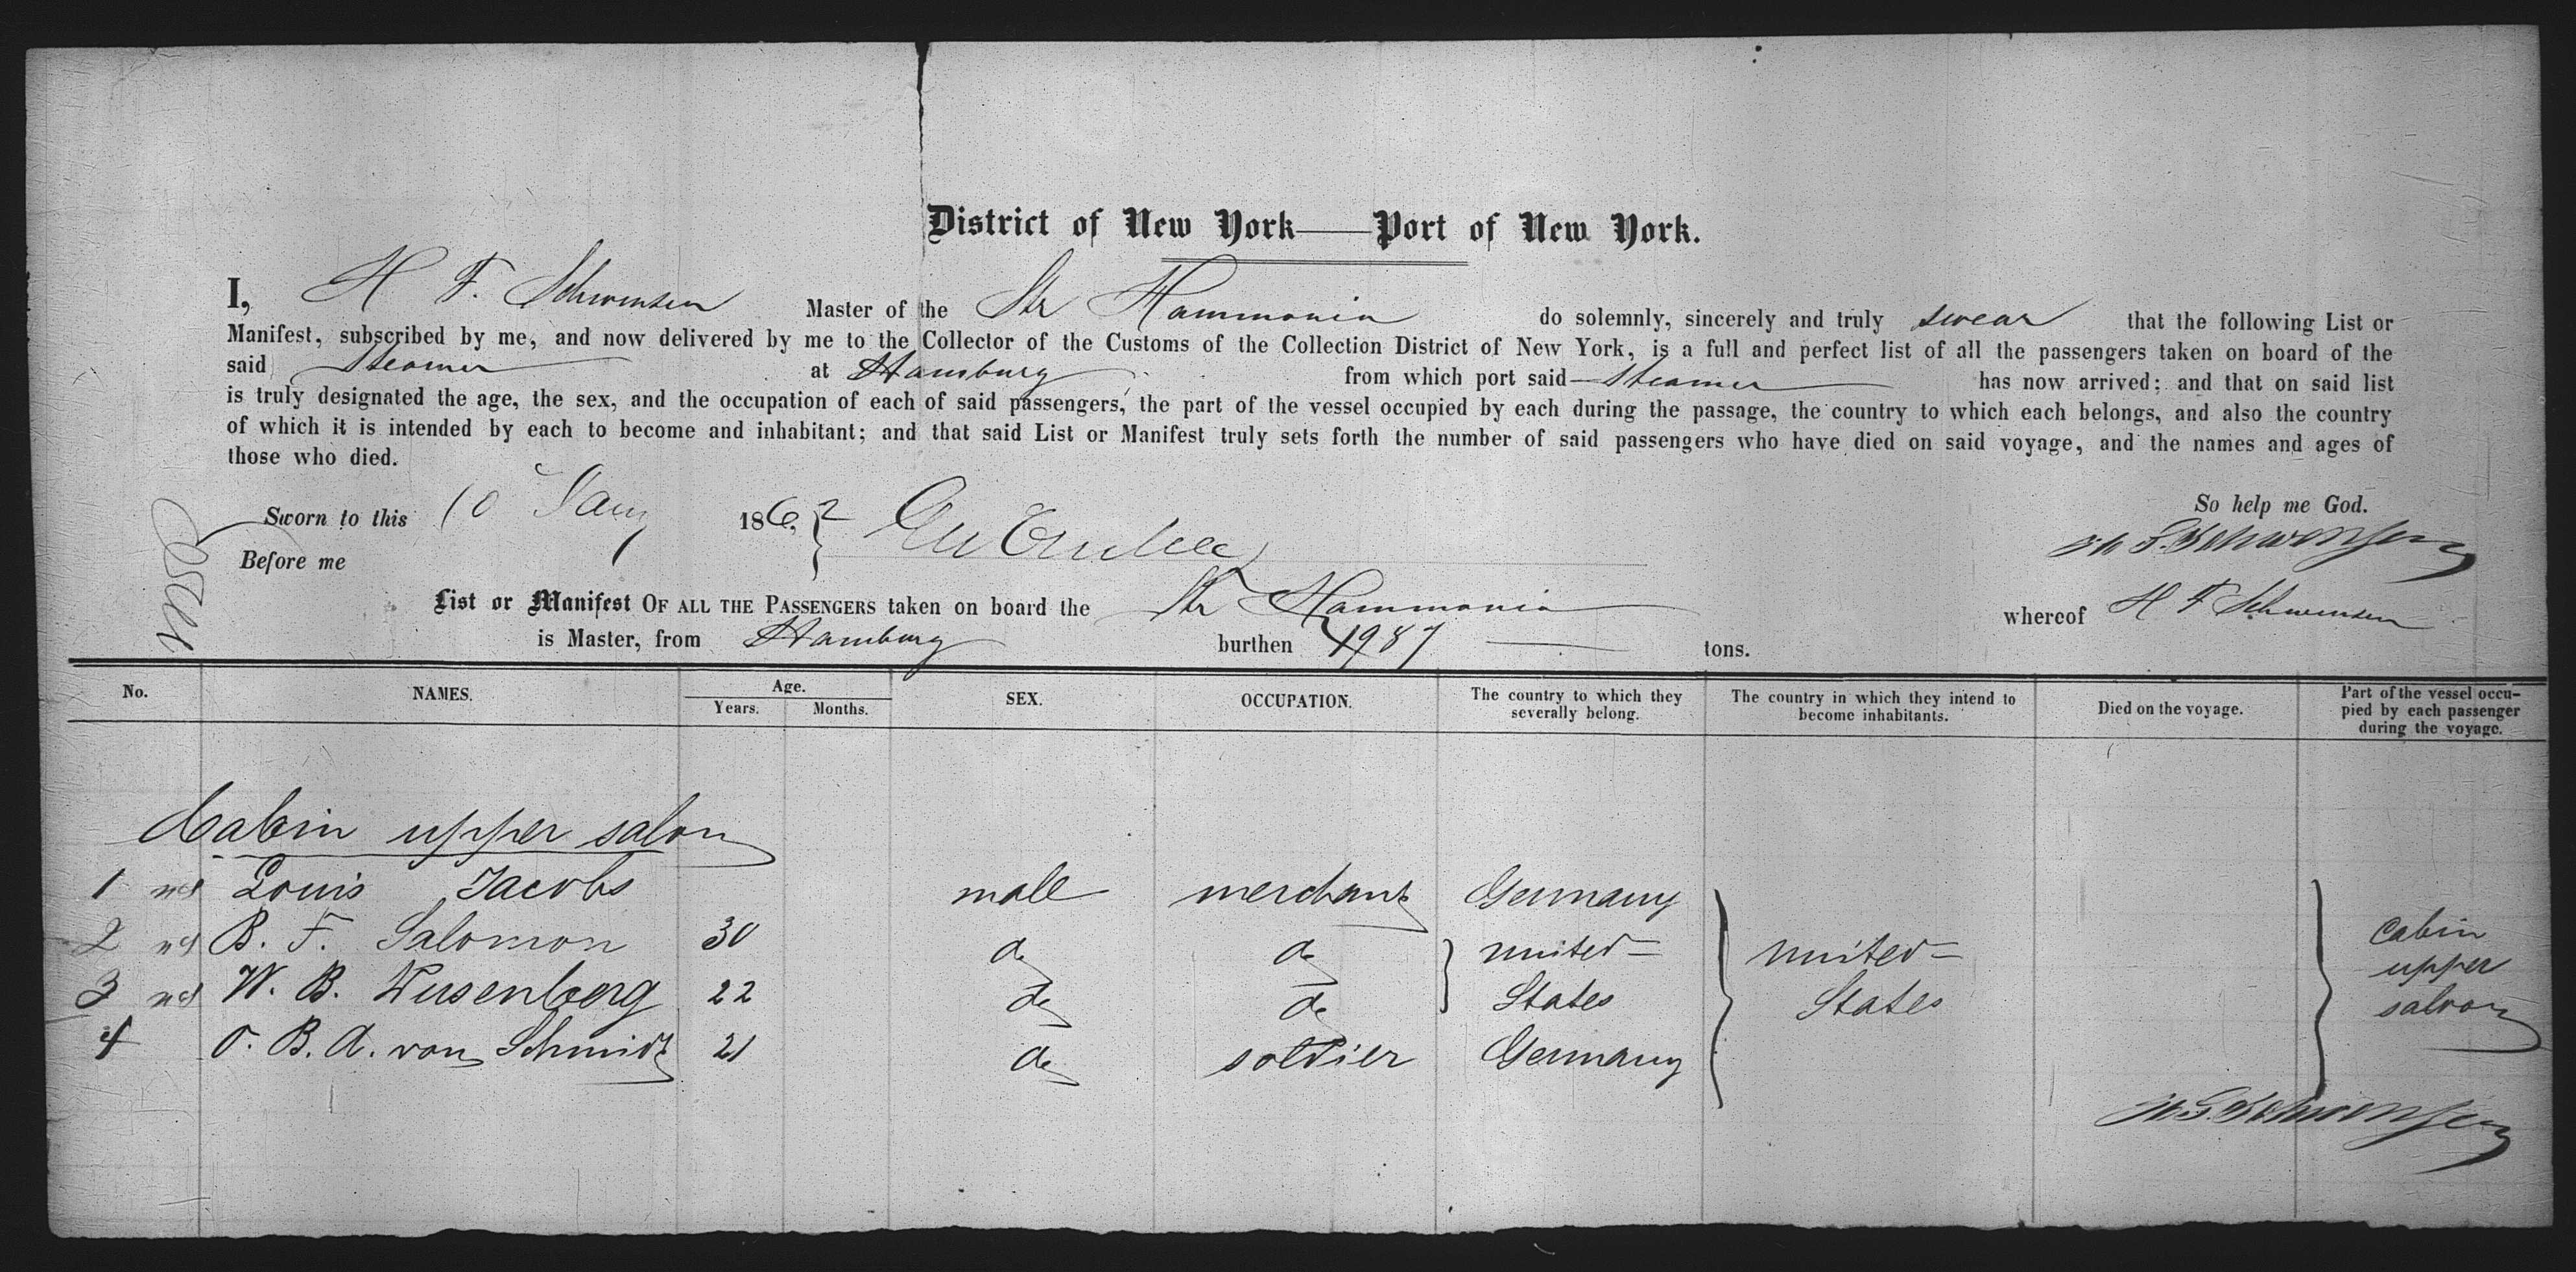 District of New York—Port of New York.
I, H F. Schwensen Master of the Str Hammonia do solemnly, sincerely and truly swear that the following List or
Manifest, subscribed by me, and now delivered by me to the Collector of the Customs of the Collection District of New York, is a full and perfect list of all the passengers taken on board of the
said Steamer at Hamburg from which port said Steamer has now arrived; and that on said list
is truly designated the age, the sex, and the occupation of each of said passengers, the part of the vessel occupied by each during the passage, the country to which each belongs, and also the country
of which it is intended by each to become and inhabitant; and that said List or Manifest truly sets forth the number of said passengers who have died on said voyage, and the names and ages of
those who died.
So help me God.
Sworn to this 10 Jany 1862
H F. Schwensen
Before me
List or Manifest OF ALL THE PASSENGERS taken on board the Str Hammonia whereof H F Schwensen
is Master, from Hamburg burthen 1987 tons.
No. NAMES. Age. Years. Months. SEX. OCCUPATION. The country to which they severally belong. The country in which they intend to become inhabitants. Died on the voyage. Part of the vessel occu-pied by each passenger during the voyage.
Cabin upper salon
1 Louis Jacobs male merchant Germany
2 B. F. Salomon 30 do do United States
3 W. B. 22 do do
4 O. B. A. von Schmidt 21 do soldier Germany
United States
cabin
upper
saloon
H F. Schwensen